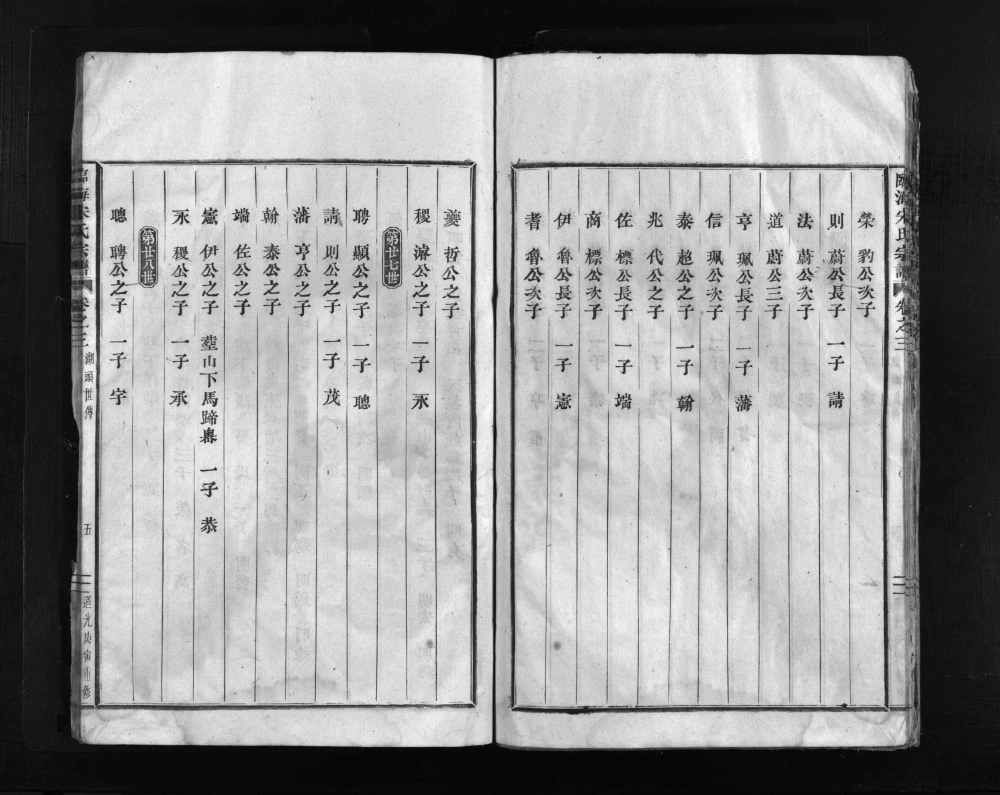 榮 豹公次子
則 蔚公長子 一子 請
法 蔚公次子
道 蔚公三子
亨 珮公長子 一子 藩
信 珮公次子
泰 趂公之子 一子 翰
兆 代公之子
佐 標公長子 一子 端
商 標公次子
伊 魯公長子 一子 憲
耆 魯公次子
夔 哲公之子
稷 濬公之子 一子 永
第廿七世
聘 顯公之子 一子 聰
請 則公之子 一子 茂
藩 亨公之子
翰 泰公之子
端 佐公之子
憲 伊公之子 塟山下馬蹄𡽪 一子 恭
永 稷公之子 一子 承
第廿八世
聰 聘公之子 一子 宇
臨海朱氏宗譜 卷之三 湖頭世傳 五 道光庚寅重修